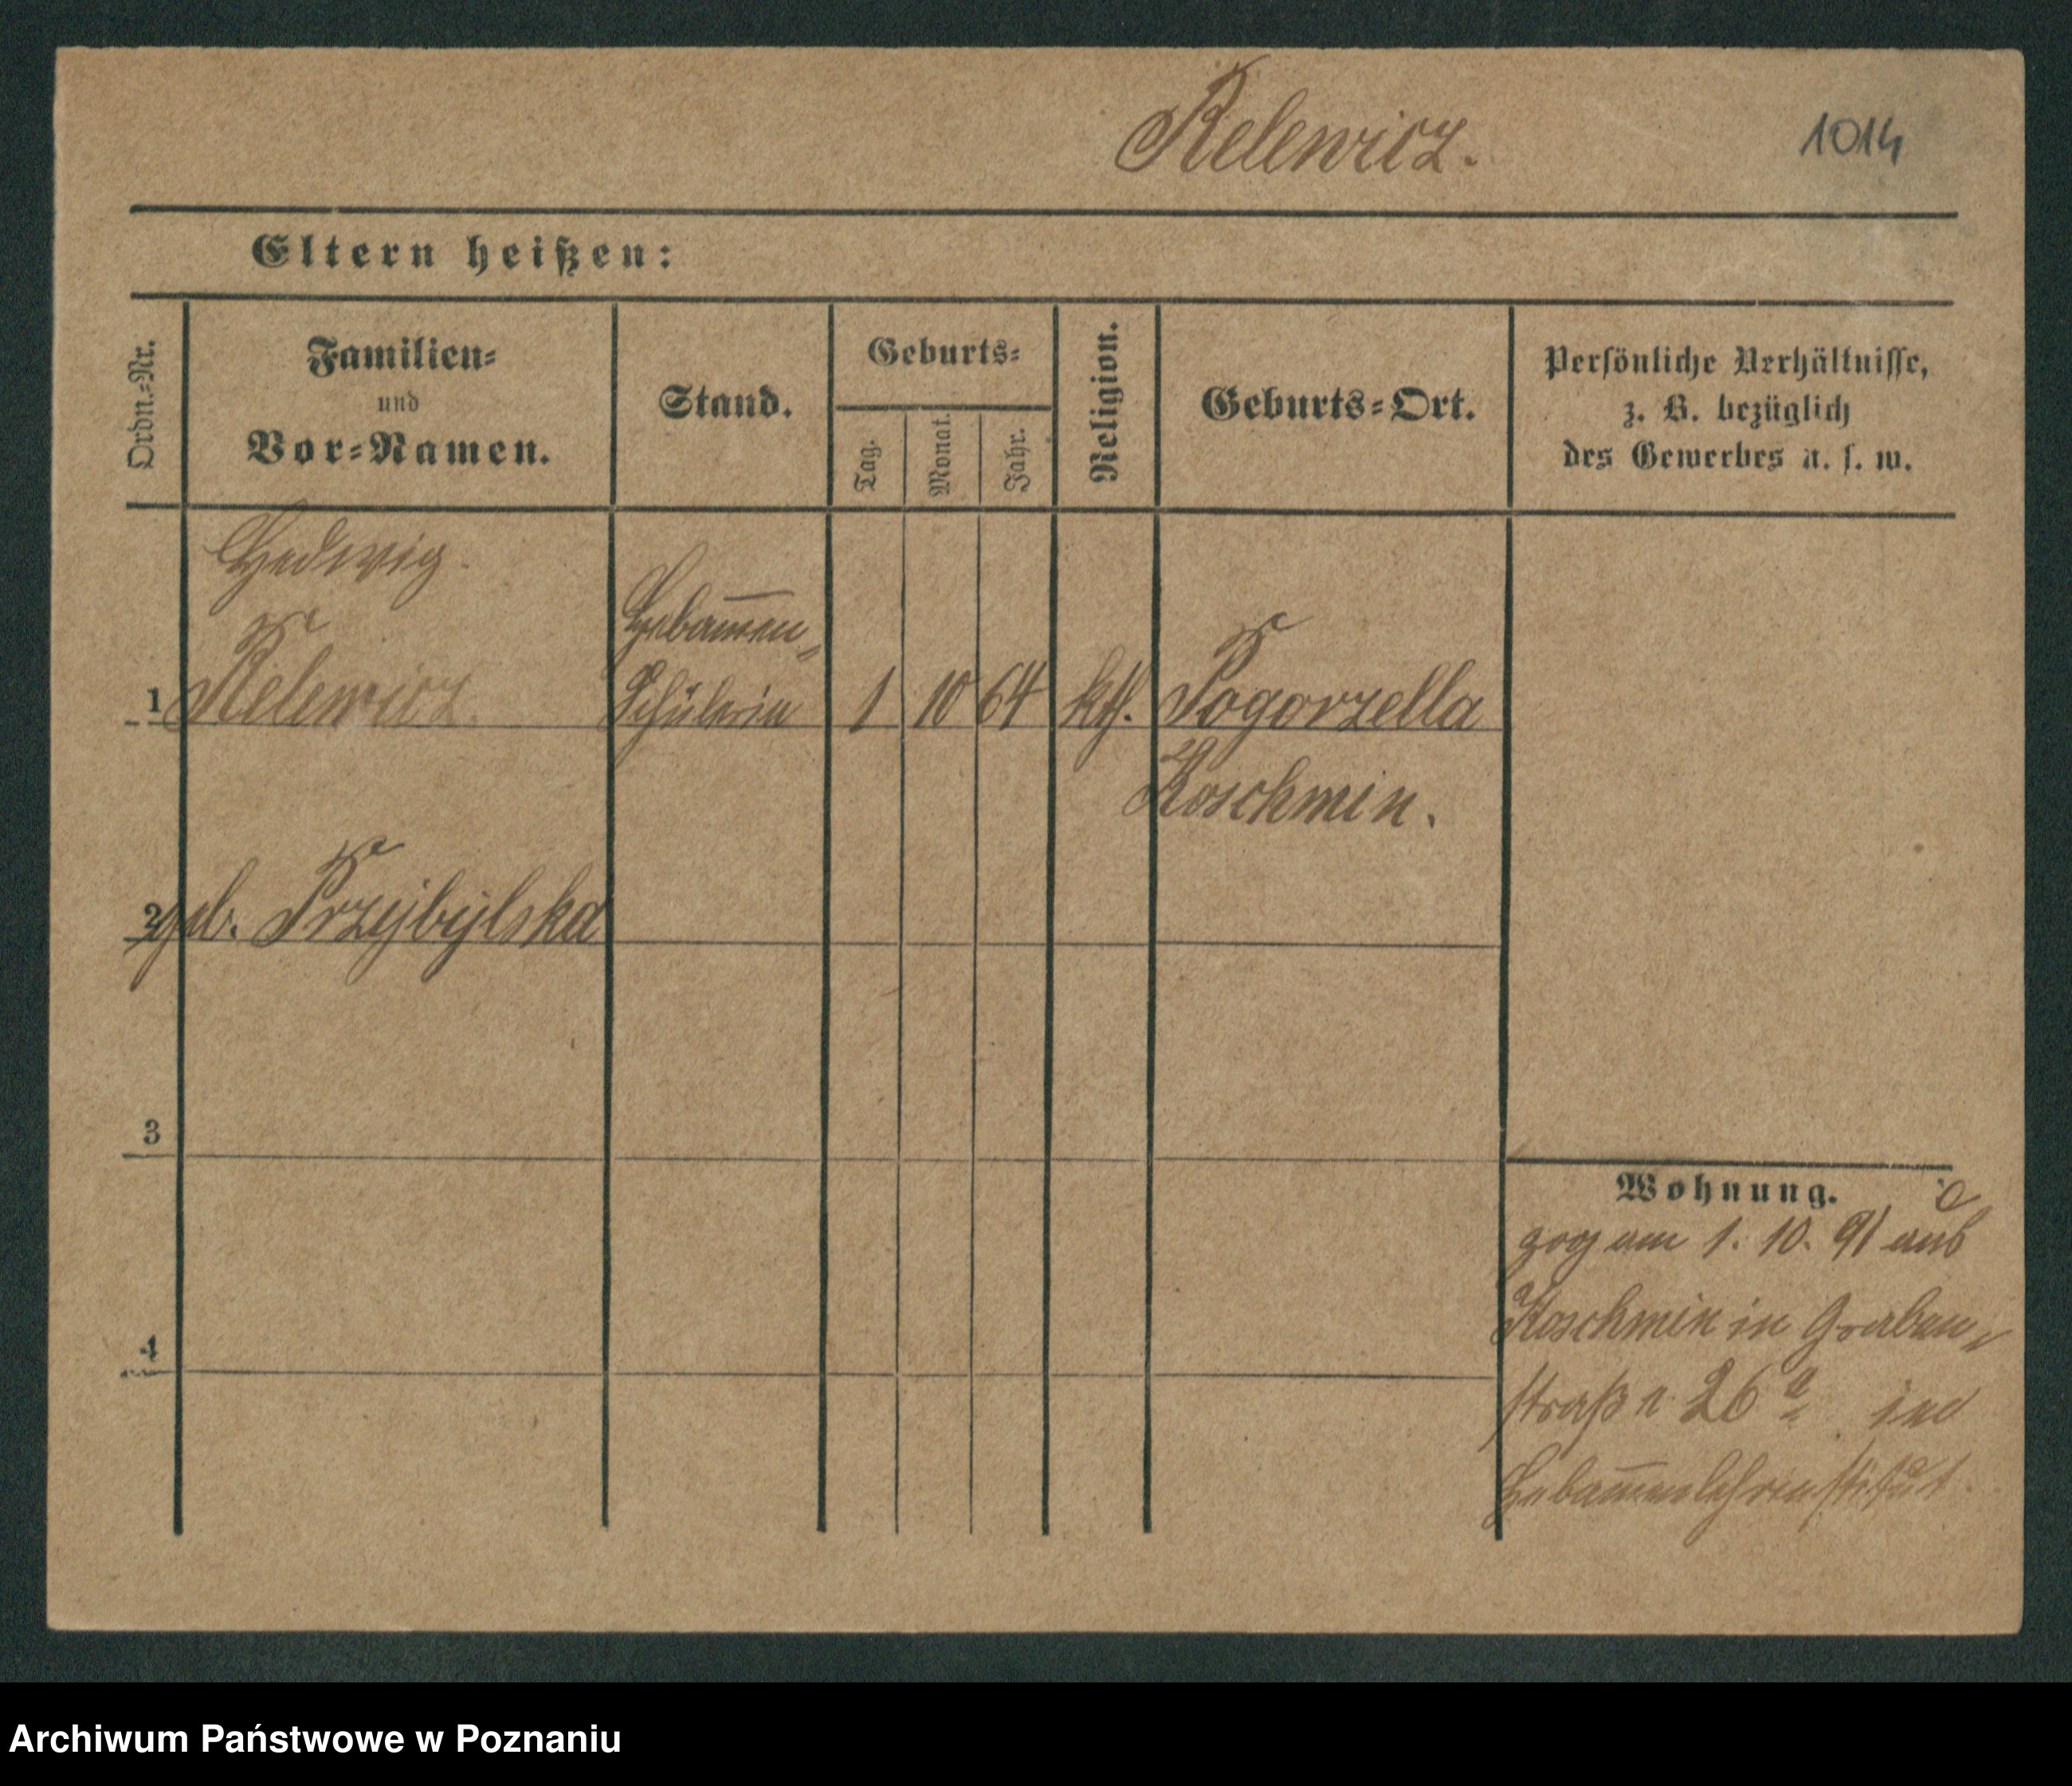 Relewicz.
1014
Eltern heißen:
Ordn.-Nr.
Familien-
und
Vor-Namen.
Stand.
Geburts-
Tag.
Monat.
Jahr.
Religion.
Geburts-Ort.
Persönliche Verhältnisse,
z. B. bezüglich
des Gewerbes u. s. w.
Hedwig.
Hebam̅en-
1 Relewicz. Schülerin 1 10 64 kth. Pogorzella
Koschmin.
2 geb. Przybylska
3
Wohnung.
zog am 1. 10. 91 aus
Koschmin in Graben-
straß 26 a ins
Hebam̅enlehrinstitut.
4
Archiwum Państwowe w Poznaniu